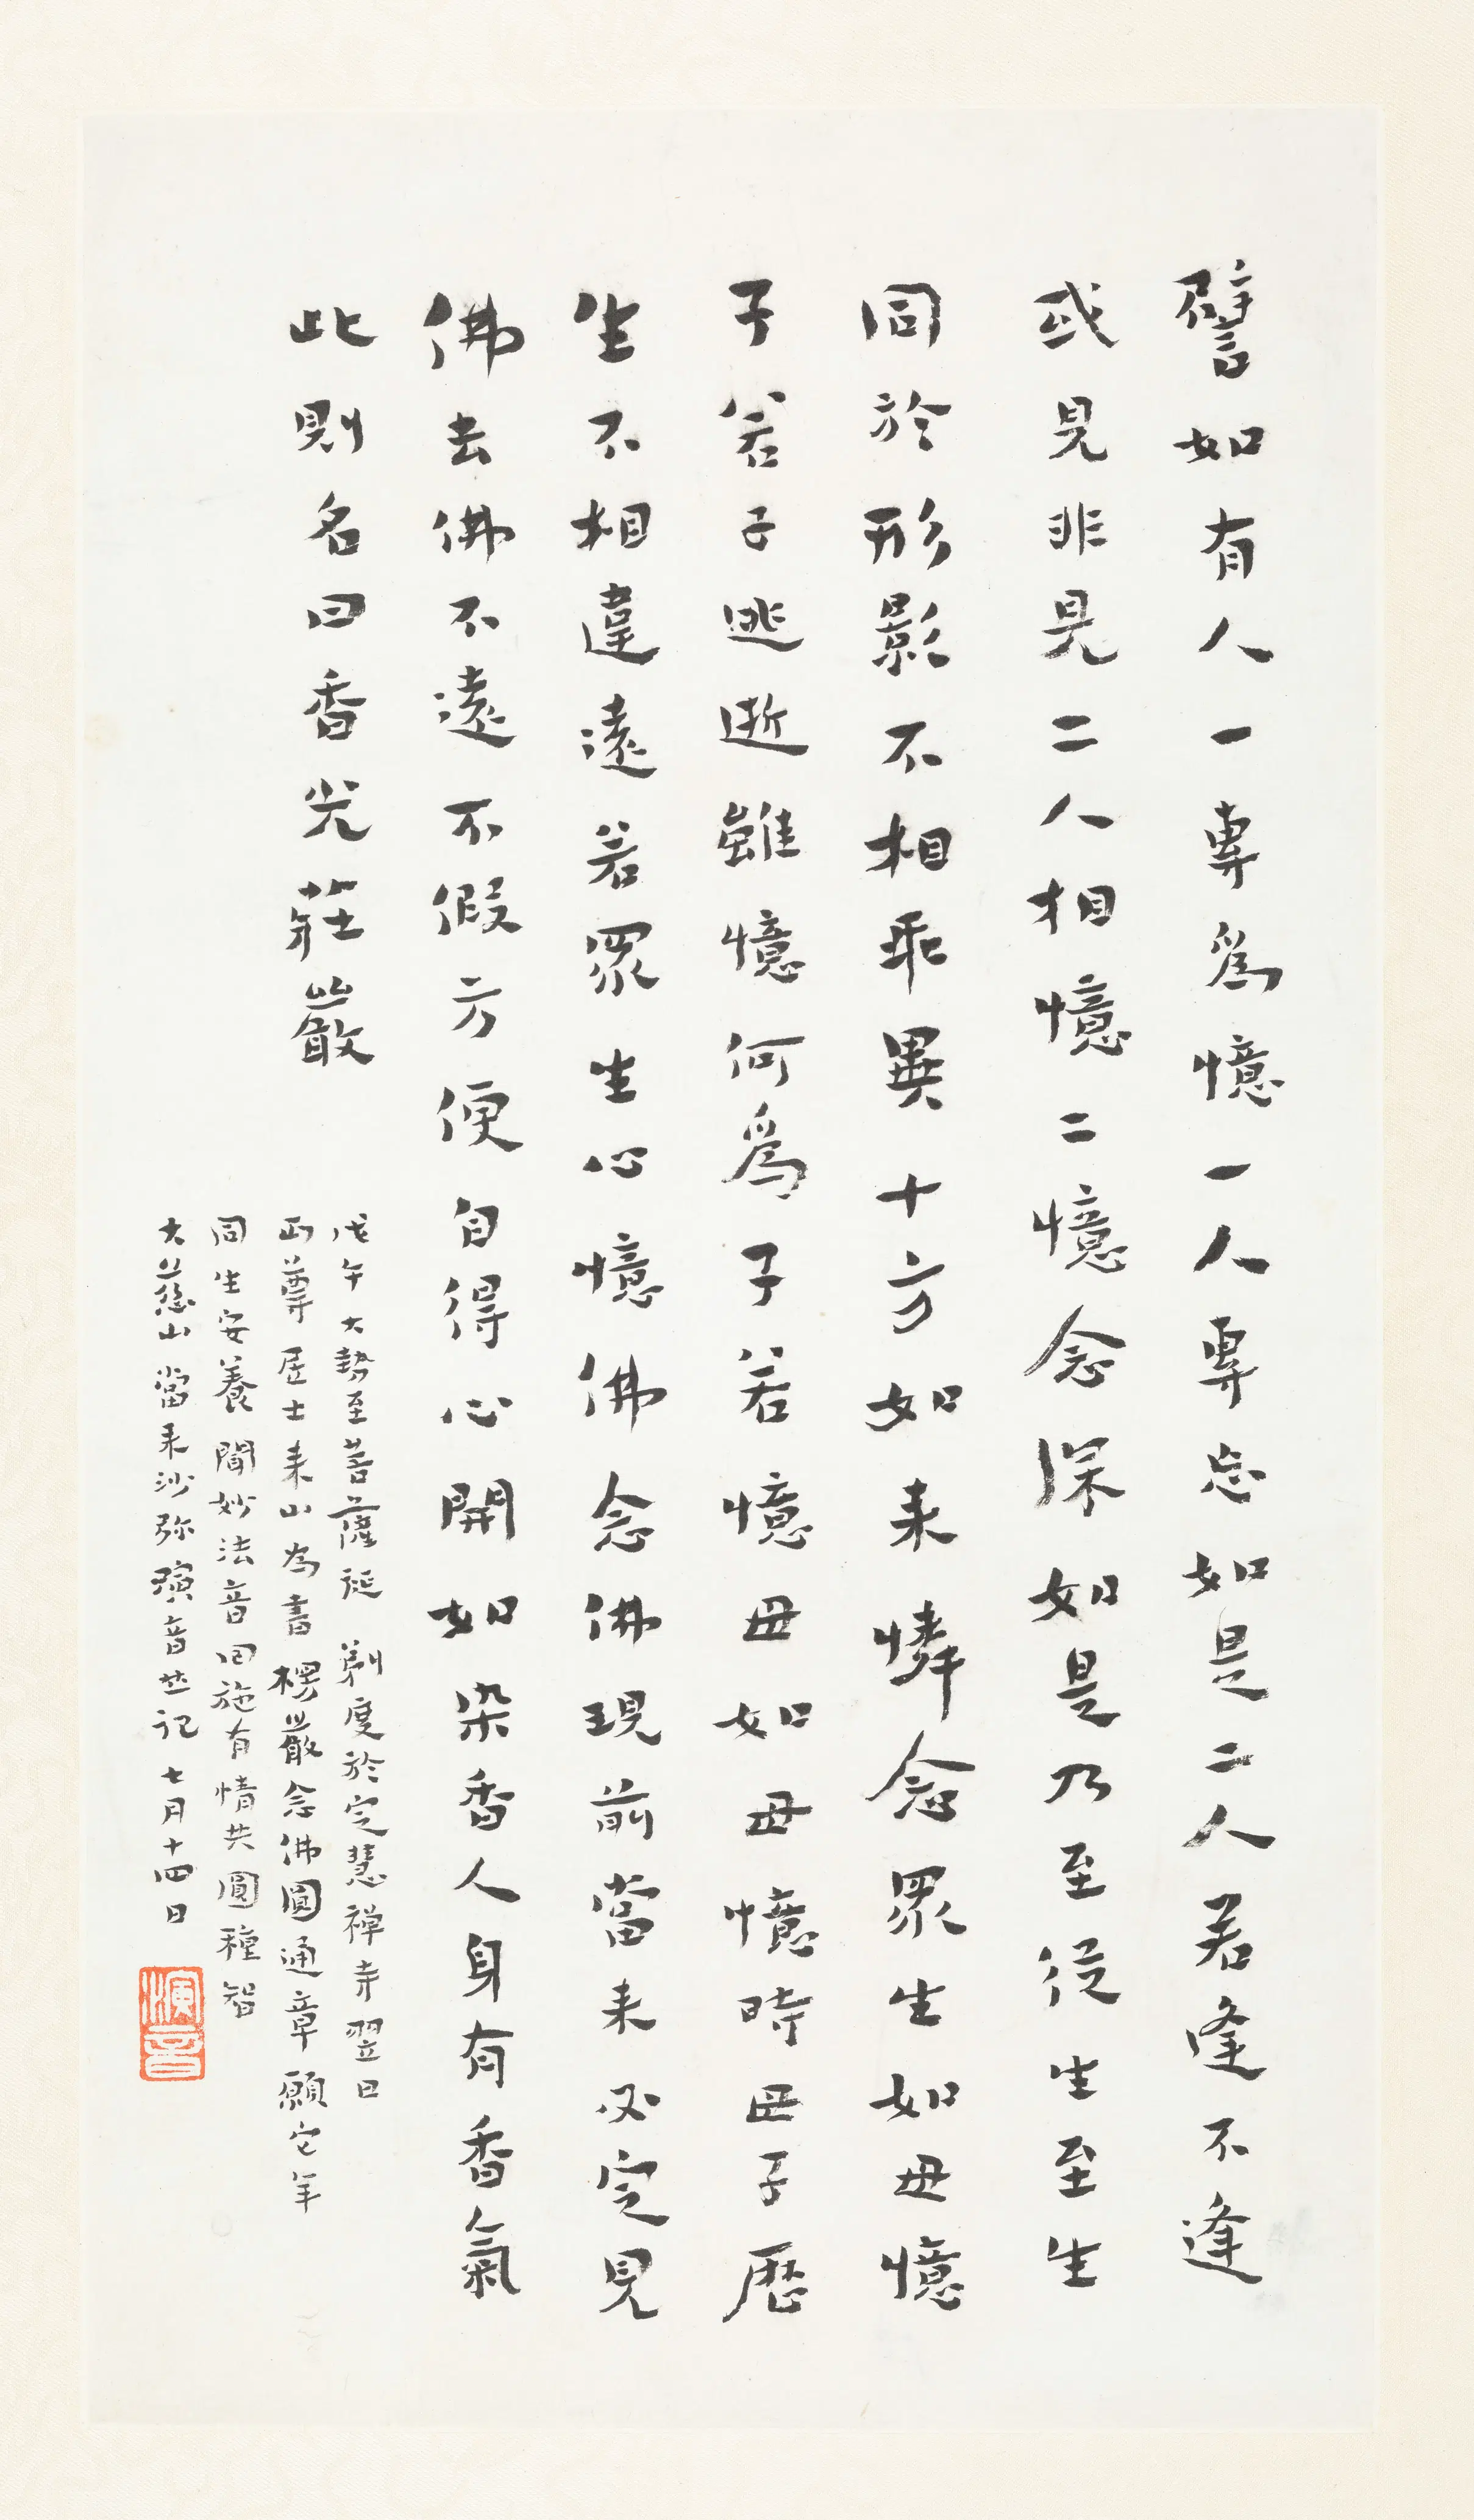 譬如有人一專爲憶一人專忘如是二人若逢不逢
或見非見二人相憶二憶念深如是乃至從生至生
同於形影不相乖異十方如来憐念眾生如母憶
子若子逃逝雖憶何爲子若憶母如母憶時母子歷
生不相違遠若眾生心憶佛念佛現前當来必定見
佛去佛不遠不假方便自得心開如染香人身有香氣
此則名曰香光莊嚴
戊午大勢至菩薩誕剃度於定慧禅寺翌日
丏尊居士来山為書楞嚴念佛圓通章願它年
同生安養聞妙法音回施有情共圓種智
大慈山當来沙弥演音并記七月十四日
演音